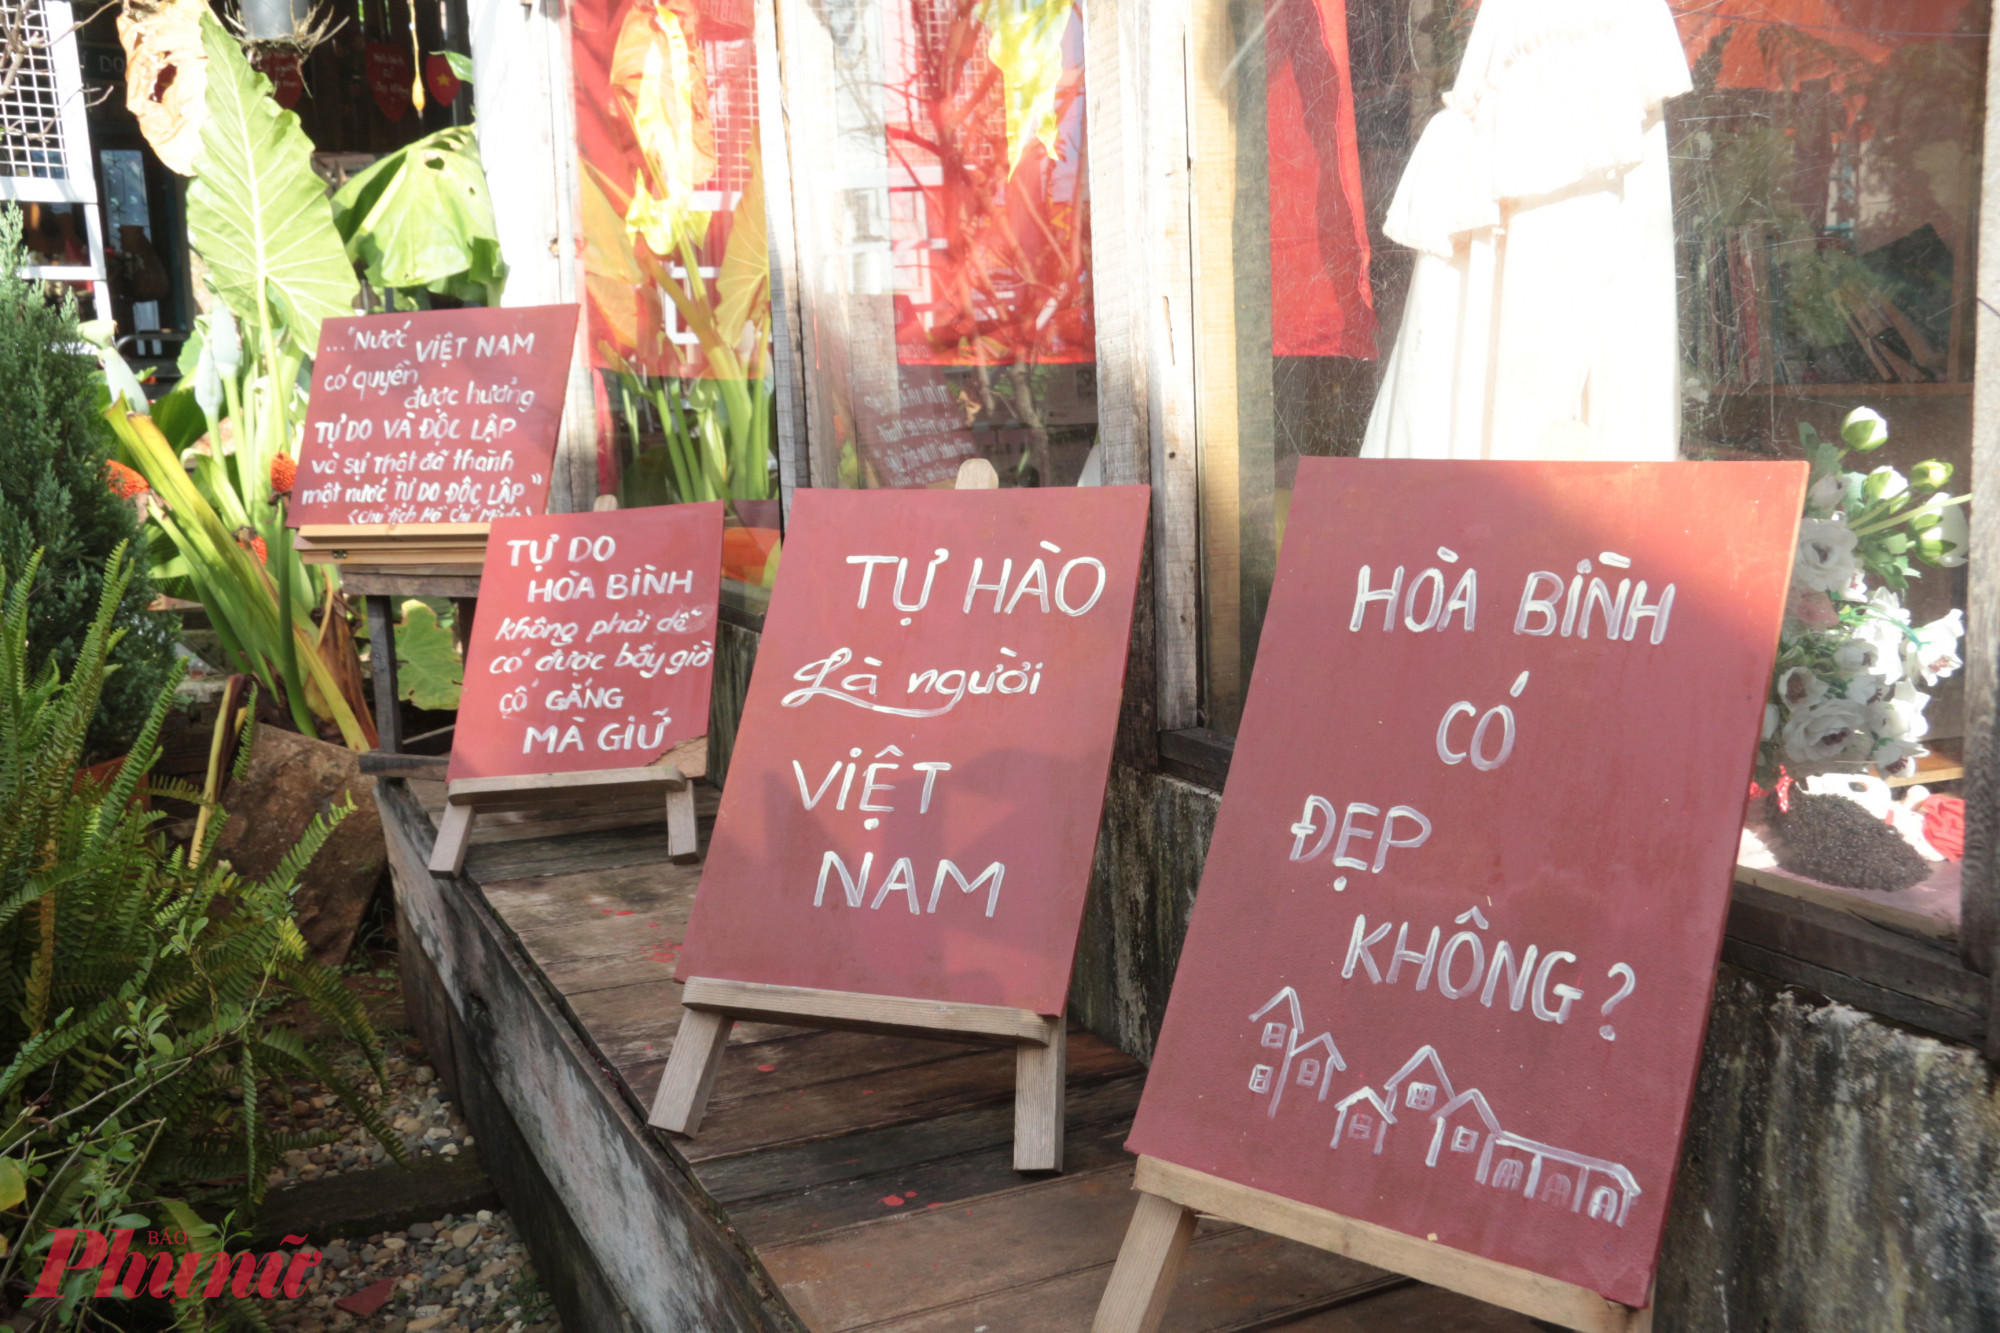 ..."Nước VIỆT NAM
có quyền
được hưởng
TỰ DO VÀ ĐỘC LẬP
và sự thật đã thành
một nước TỰ DO ĐỘC LẬP"
(Chủ tịch Hồ Chí Minh)
TỰ DO
HÒA BÌNH
không phải dễ
có được bây giờ
CỐ GẮNG
MÀ GIỮ
TỰ HÀO
Là người
VIỆT
NAM
HÒA BÌNH
CÓ
ĐẸP
KHÔNG?
BÁO
Phụ nữ